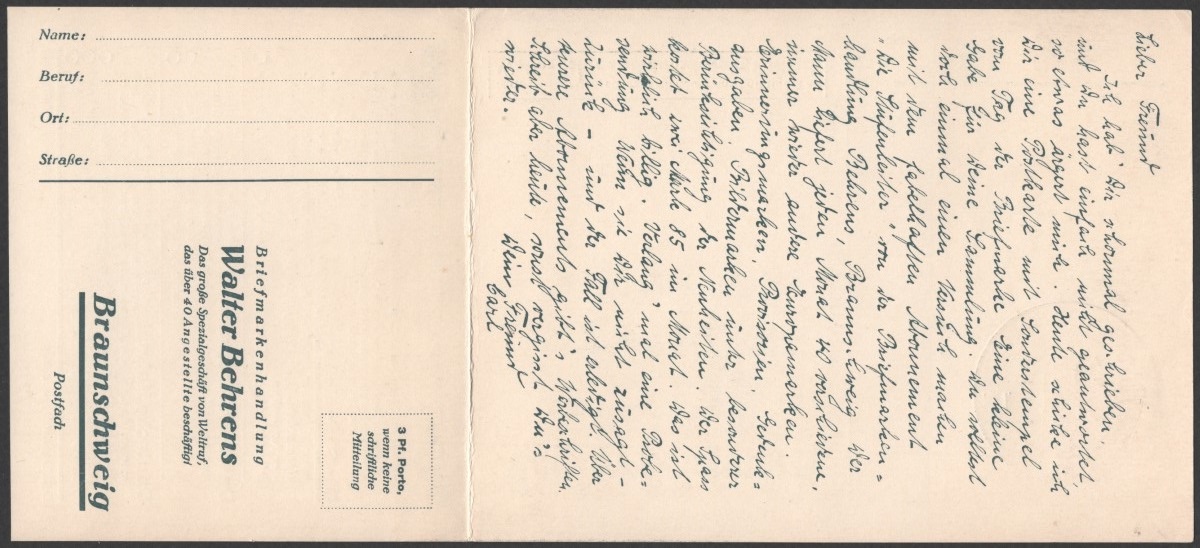 Name:
Beruf:
Ort:
Straße:
Briefmarkenhandlung
Walter Behrens
Das große Spezialgeschäft von Weltruf,
das über 40 Angestellte beschäftigt
Braunschweig
Postfach
3 Pf. Porto,
wenn keine
schriftliche
Mitteilung
Lieber Freund
Ich hab' Dir schonmal geschrieben,
und Du hast einfach nicht geantwortet,
so etwas ärgert mich. Heute schicke ich
Dir eine Postkarte mit Sonderstempel
vom Tag der Briefmarke. Eine kleine
Gabe für Deine Sammlung. Du solltest
doch einmal einen Versuch machen
mit dem fabelhaften Abonnement
„Die Stufenleiter" von der Briefmarken=
handlung Behrens, Braunschweig. Der
Mann liefert jeden Monat 40 verschiedene,
immer wieder andere Europamarken.
Erinnerungsmarken, Provisorien, Gedenk=
ausgaben, Bildermarken unter besonderer
Berücksichtigung der Neuheiten. Der Spass
kostet eine Mark 85 im Monat. Das ist
wirklich billig. Verlang' mal eine Probe=
sendung. Wenn sie Dir nicht zusagt –
zurück – und der Fall ist erledigt. Über
teurere Abonnements gibt's Werbeschriften.
Schreib aber heute, sonst vergisst Du's
wieder.
Dein Freund
Carl